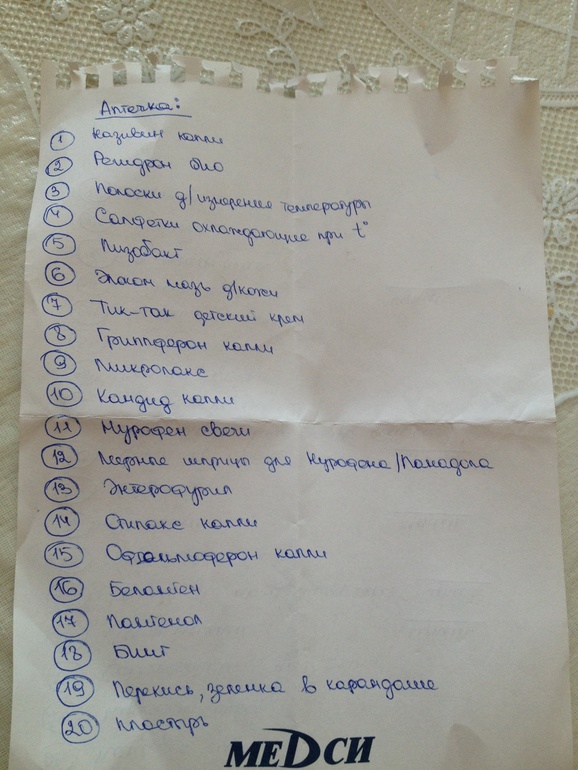 Аптечка:
1 Називин капли
2 Регидрон био
3 Полоски д/измерения температуры
4 Салфетки охлаждающие при t°
5 Лизобакт
6 мазь д/кожи
7 Тик-так детский крем
8 Гриппферон капли
9 Микролакс
10 Кандид капли
11 Нурофен свечи
12 Мерные шприцы для Нурофена/Панадола
13 Энтерофурил
14 Отипакс капли
15 Офтальмоферон капли
16 Бепантен
17 Пантенол
18 Бинт
19 Перекись, зеленка в карандаше
20 Пластырь
МЕДСИ